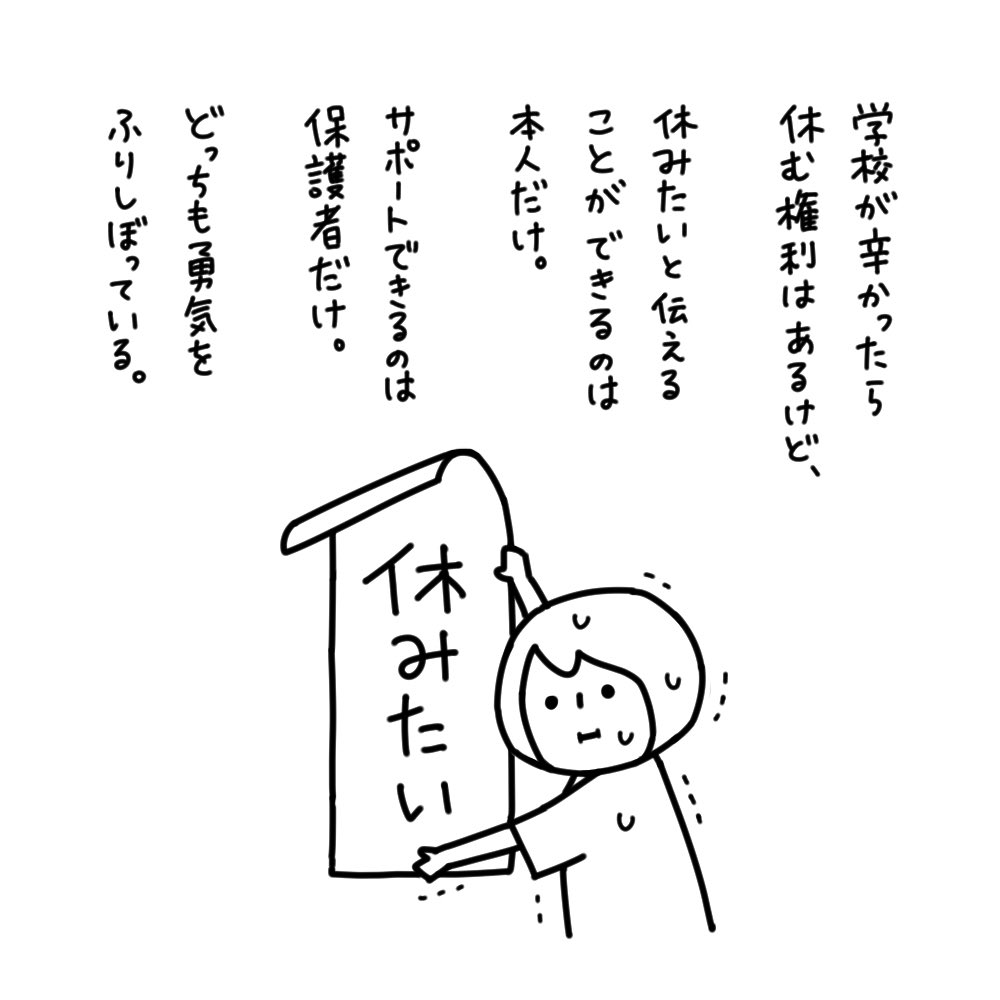 学校が辛かったら
休む権利はあるけど、
休みたいと伝える
ことができるのは
本人だけ。
サポートできるのは
保護者だけ。
どっちも勇気を
ふりしぼっている。
休みたい